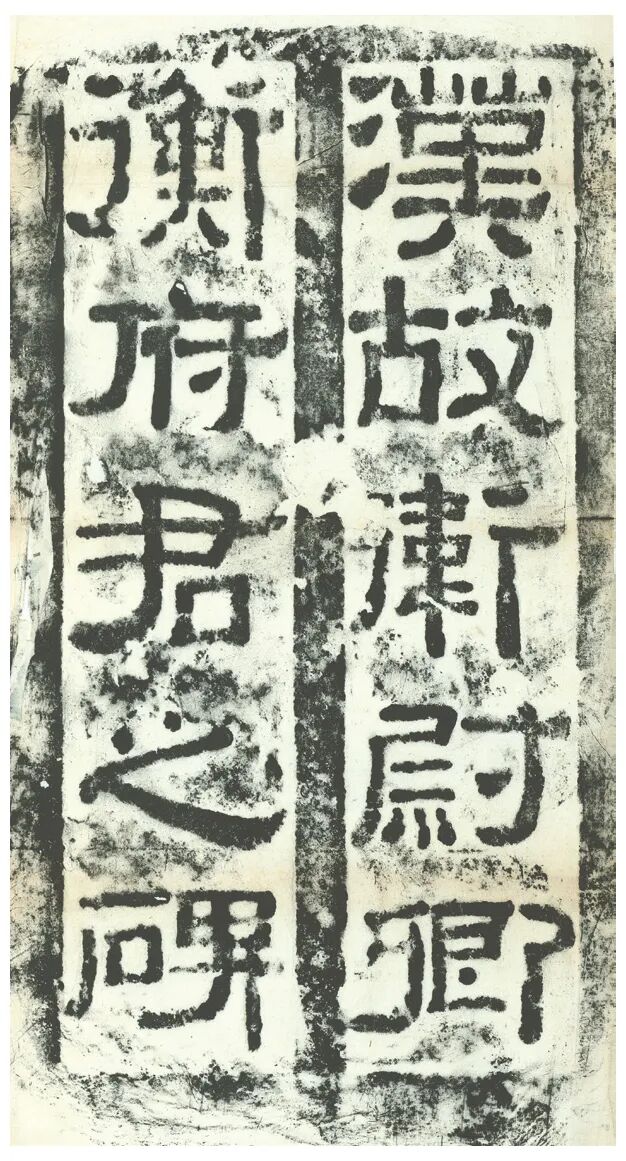 漢故衛尉卿
衡府君之碑